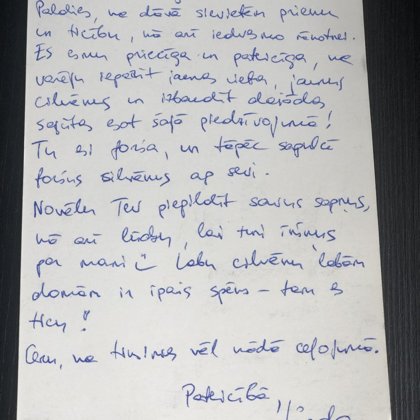 Paldies, ka dāvā sievietēm prieku
un ticību, kā arī iedvesmo
Es esmu priecīga un pateicīga, ka
varēju iepazīt jaunas vietas, jaunus
cilvēkus un izbaudīt dažādas
sajūtas esot šajā piedzīvojumā!
Tu esi forša, un tāpēc sapulcē
foršus cilvēkus ap sevi.
Novēlu Tev piepildīt savus sapņus,
kā arī lūdzu, lai turi īkšķus
par mani Labu cilvēku labām
domām ir īpašs spēks – tam es
ticu!
Ceru, ka tiksimies vēl kādā ceļojumā.
Pateicībā